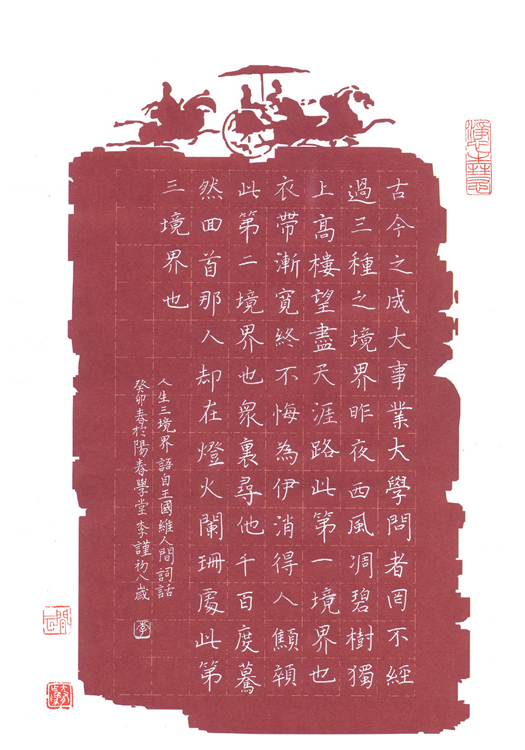 古今之成大事業大學問者罔不經
過三種之境界昨夜西風凋碧樹獨
上高樓望盡天涯路此第一境界也
衣帶漸寬終不悔為伊消得人顦顇
此第二境界也衆裏尋他千百度驀
然回首那人却在燈火闌珊處此第
三境界也
人生三境界語自王國維人間詞話
癸卯春於陽春學堂李謹初八歲